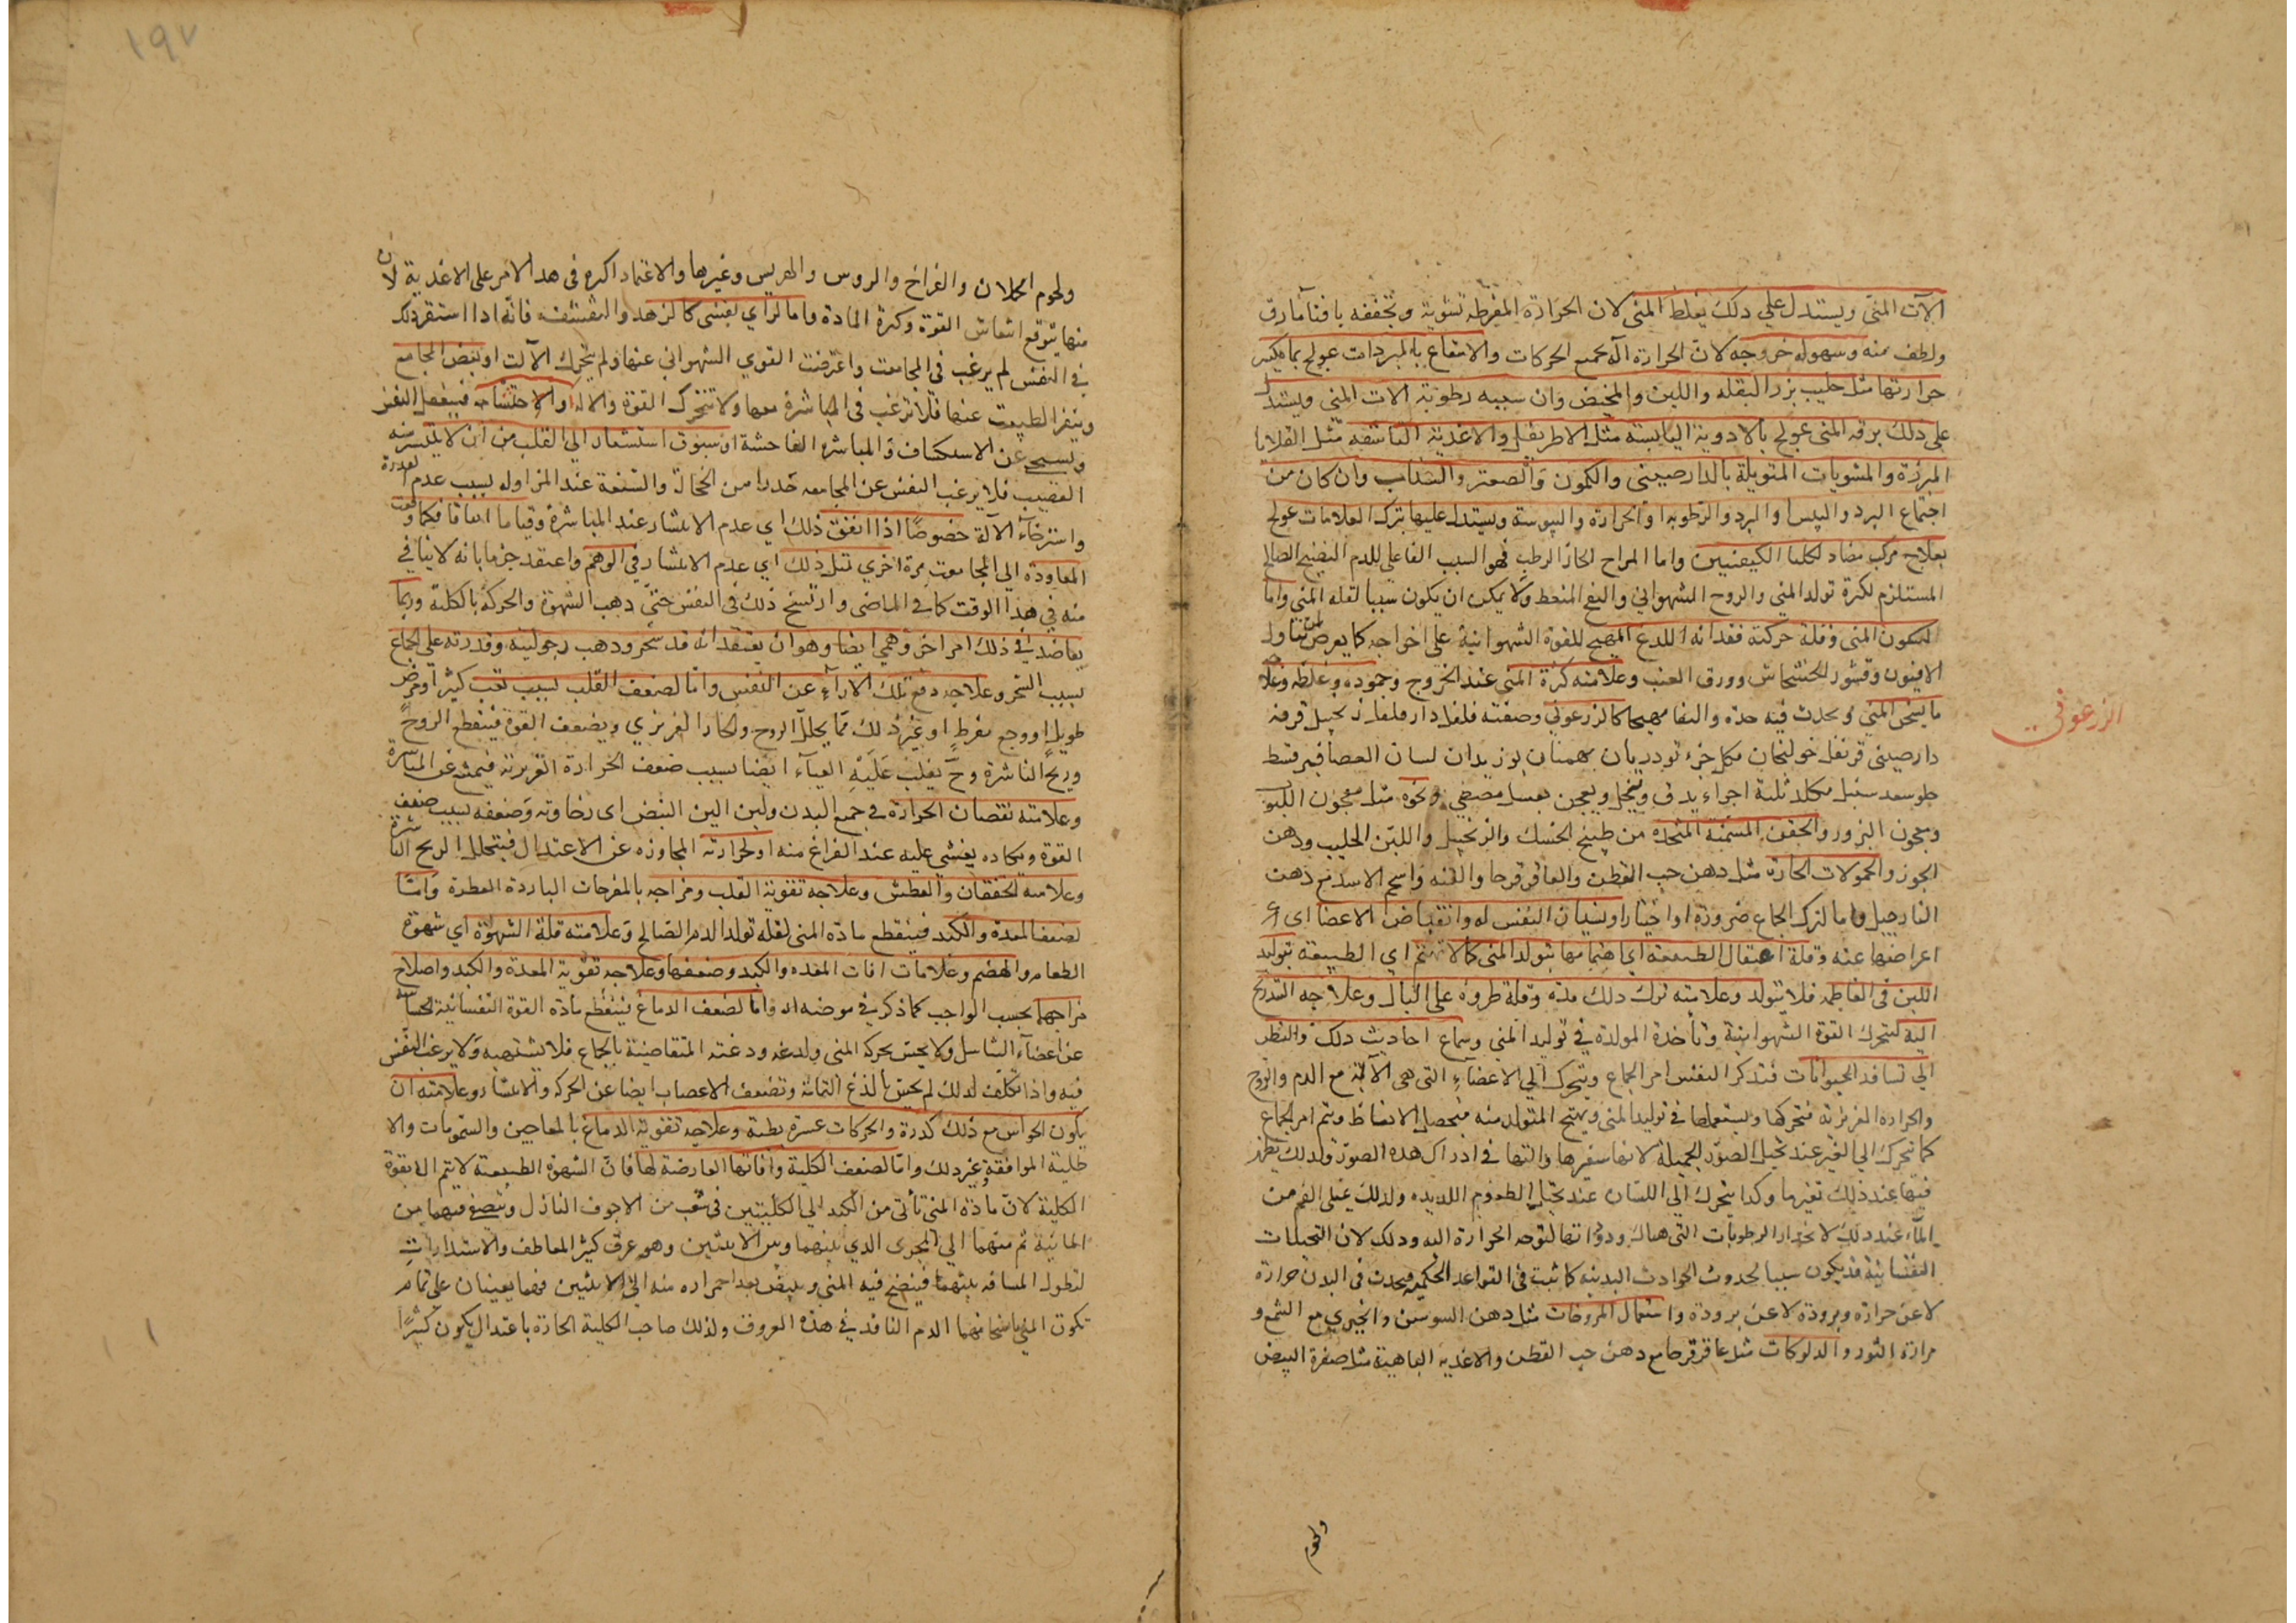 الآت المنى ويستدل علي ذلك بغلظ المنى لان الحرارة المفرطه تشويه وتجففه بافنا ما رق
ولطف منه وسهوله خروجه لان الحرارة آله لجميع الحركات والانتفاع بالمبردات عولج بما يكسر
حرارتها مثل حليب بزر البقله واللبن والمخيض وان سببه رطوبة الات المنى ويستدل
على ذلك برقه المنى عولج بالادوية اليابسه مثل الاطريفل والاغذية الناشفه مثل القلايا
المبرزة والمشويات المتوبلة بالدارصينى والكمون والصعتر والسذاب وان كان من
اجتماع البرد واليبس او البرد والرطوبه او الحرارة واليبوسة ويستدل عليها بتركب العلامات عولج
بعلاج مركب مضاد لكلتا الكيفيتين واما المزاج الحار الرطب فهو السبب الفاعلي للدم النضيج الصالح
المستلزم لكثرة تولد المني والروح الشهواني والنفخ المنعظ ولا يمكن ان يكون سببا لقله المنى واما
لسكون المنى وقلة حركته فقدانه اللدغ المهيج للقوة الشهوانية على اخراجه كما يعرض لمن يتناول
الافيون وقشور الخشخاش وورق العنب وعلامته كثرة المنى عند الخروج وجموده وغلظه وعلاجه
ما يسخن المني ويحدث فيه حدة والنفا مهيجا كالزرعوني وصفته فلفل دار فلفل زنجبيل قرفه
الزرعوني
دارصينى قرنفل خولنجان مكلد جزء تودريان بهمنان بوزيدان لسان العصافير قسط
حلو سعد سنبل مكلد ثلثة اجزاء يدق وينخل ويعجن بعسل مصفي ونحوه مثل معجون اللبوب
ومعجون البزور والحقن المسمنة المتخذه من طبيخ الحسك والزنجبيل واللبن الحليب ودهن
الجوز والحمولات الحارة مثل دهن حب القطن والعاقر قرحا والقنه وشحم الاسد مع دهن
النارجيل واما لترك الجماع ضرورة او اختيارا ونسيان النفس له وانقباض الاعضا اى
اعراضها عنه وقلة احتفال الطبيعة اى اهتمامها بتولد المنى كما لا تهتم اي الطبيعة بتوليد
اللبن فى الفاطمه فلا يتولد وعلامته ترك ذلك مدة وقلة طروه على البال وعلاجه التدريج
اليه ليتحرك القوة الشهوانية وتأخذ المولدة في توليد المني وسماع احاديث ذلك والنظر
الي تسافد الحيوانات فتتذكر النفس امر الجماع ويتحرك الي الاعضآء التى هى الآلته مع الدم والروح
والحرارة الغريزية فتحركها ويستعملها في توليد المنى ويهيج المتولد منه فيحصل الانعاظ ويتم امر الجماع
كما تحرك الي الغير عند تخيل الصور الجميلة لانها سفيرها والتها في ادراك هذه الصور ولذلك يظهر
فيها عند ذلك تغيرما وكذا يتحرك الي اللسان عند تخيل الطعوم اللذيذه ولذلك يمتلى الفم من
المآء عند ذلك لانحدار الرطوبات التى هناك وذوبانها لتوجه الحرارة اليه وذلك لان التخيلات
النفسانية قد يكون سببا لحدوث الحوادث البدنيه كما ثبت في القواعد الحكمية فيحدث فى البدن حرارة
لا عن حرارة وبرودة لا عن برودة واستعمال المروخات مثل دهن السوسن والخيري مع الشمع و
مرارة الثور والدلوكات مثل عاقر قرحا مع دهن حب القطن والاغذية الباهية مثل صفرة البيض
ولحوم
١٩٧
ولحوم الحملان والفراخ والروس والهريس وغيرها والاعتماد اكثره فى هذا الامر على الاغذية لان
منها يتوقع انتعاش القوة وكثرة المادة واما لراي نفسى كالزهد والتقشف فانه اذا استقر ذلك
في النفس لم يرغب في المجامعة واعرضت القوي الشهواني عنها ولم يتحرك الآلات او بغض المجامع
وينفر الطبيعت عنها فلا ترغب في المباشرة معها ولا تتحرك القوة والاله او الاحتشام فينفعل النفس
ويستحى عن الاستكشاف والمباشرة الفاحشة او سبوق استشعار الي القلب من ان لا ينتشر منه
القضيب فلا يرغب النفس عن المجامعه حذرا من الخجالة والشنعة عند المزاوله بسبب عدم القدرة
واسترخآء الآلة خصوصًا اذا اتفق ذلك اي عدم الانتشار عند المباشرة وقتا ما اتفاقا فكلما وقعت
المعاودة الي المجامعت مرة اخري تمثل ذلك اي عدم الانتشار في الوهم واعتقد جزما بانه لا يتأتى
منه في هذا الوقت كما في الماضى وارتسخ ذلك فى النفس حتى ذهب الشهوة والحركة بالكلية وربما
يعاضد في ذلك امر اخر وهمي ايضا وهو ان يعتقد انه قد سحر وذهب رجوليته وقدرته على الجماع
بسبب السحر وعلاجه دفع تلك الآرآء عن النفس واما لضعف القلب بسبب تعب كثير او مرض
طويل او وجع مفرط او غير ذلك مما يحلل الروح والحار الغريزي ويضعف القوة فينقطع الروح
وريح الناشرة وح يغلب عليه العيآء ايضا بسبب ضعف الحرارة الغريزية فيمتنع عن المباشرة
وعلامته نقصان الحرارة في جميع البدن ولين النبض اى رخاوته وضعفه بسبب ضعف
القوة ويكاد يغشي عليه عند الفراغ منه او لحرارته المجاوزه عن الاعتدال فيتحلل الريح الناشرة
وعلامته الخفقان والعطش وعلاجه تقوية القلب ومزاجه بالمفرحات الباردة العطرة وامّا
لضعف المعدة والكبد فينقطع مادة المنى لقلة تولد الدم الصالح وعلامته قلة الشهوة اي شهوة
الطعام والهضم وعلامات افات المعده والكبد وضعفها وعلاجه تقوية المعدة والكبد واصلاح
مزاجها بحسب الواجب كما ذكر في موضعه واما لضعف الدماغ فينقطع مادة القوة النفسانية الحساسة
عن اعضآء التناسل ولا يحس بحركة المنى ولدغه ودغدغته المتقاضية بالجماع فلا يشتهيه ولا يرغب النفس
فيه واذا تكلف لذلك لم يحس بالذغ التمانة وتضعف الاعصاب ايضا عن الحركة والانتشار وعلامته ان
يكون الحواس مع ذلك كدرة والحركات عسرة بطئة وعلاجه تقوية الدماغ بالمعاجين والشمومات والا
طلية الموافقة وغير ذلك واما لضعف الكلية وافاتها العارضة لها فان الشهوة الطبيعية لا يتم الا بقوة
الكلية لان مادة المنى تأتى من الكبد الي الكليتين فى شعب من الاجوف النازل ويتصفى فيهما من
المائية ثم منهما الي المجرى الذي بينهما وبين الانثيين وهو عرق كثير المعاطف والاستدارات
لتطول المسافه بينهما فينضج فيه المنى ويبيض بعد احمراره منه الى الانثيين فهما يعينان على تمام
تكون المنى باسخانهما الدم النافذ في هذه العروق ولذلك صاحب الكلية الحارة باعتدال يكون كثيرًا